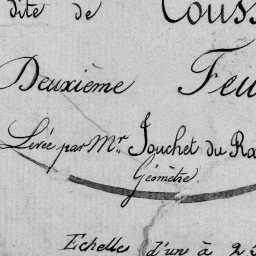 dite de Couss
Deuxième Feu
Levée par Mr. Jouchet du Ra
Géomètre.
Echelle d'un à 25